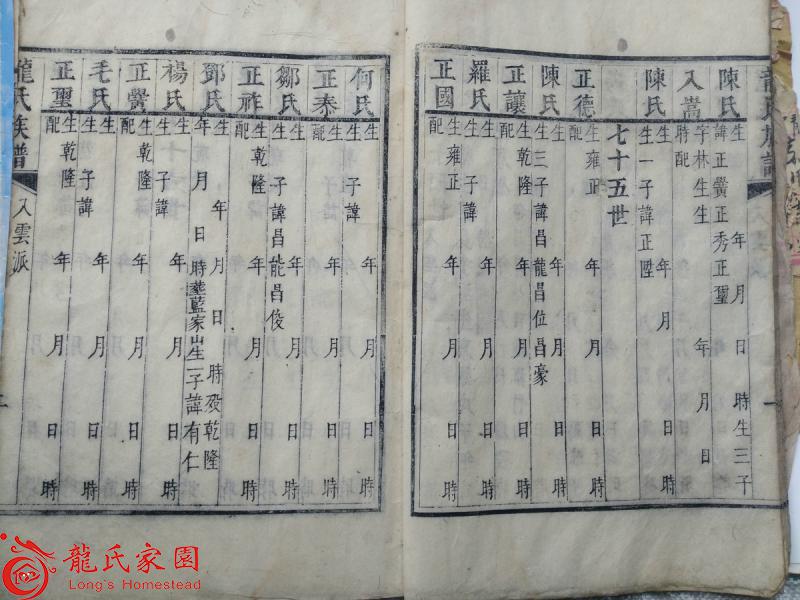 陳氏 諱正黌正秀正璽
年 月 日 時生三子
入嵩 字林生生 年 月 日
時配
陳氏 生 年 月 日 時
生一子諱正陞
七十五世
正德 生雍正 年 月 日 時
配
陳氏 生 年 月 日 時
生三子諱昌龍昌位昌豪
正讓 生乾隆 年 月 日 時
配
羅氏 生 年 月 日 時
子諱
正國 生雍正 年 月 日 時
配
何氏 生 年 月 日 時
子諱
正泰 生 年 月 日 時
配
鄒氏 生 年 月 日 時
生 子諱昌能昌俊
正祚 生乾隆 年 月 日 時
配
鄧氏 生 年 月 日 時歿乾隆
年 月 日 時 藍家山生一子諱有仁
楊氏 生 年 月 日 時
子諱
正黌 生乾隆 年 月 日 時
配
毛氏 生 年 月 日 時
生 子諱
正璽 生乾隆 年 月 日 時
配
龍氏族譜 入雲派
龍氏家園
Long's Homestead